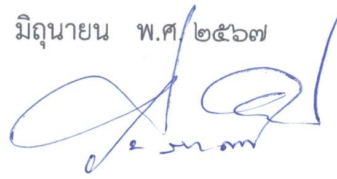 มิถุนายน พ.ศ. ๒๕๖๗